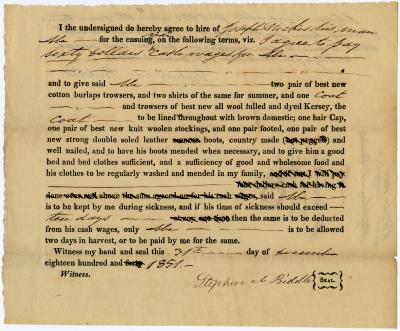 I the undersigned do hereby agree to hire of Joseph his man
Abe for the ensuing, on the following terms, viz. I agree to pay
sixty dollars Cash wages for Abe
and to give said Abe two pair of best new
cotton burlaps trowsers, and two shirts of the same for summer, and one Coat
and trowsers of best new all wool fulled and dyed Kersey, the
coat to be lined throughout with brown domestic; one hair Cap,
one pair of best new knit woolen stockings, and one pair footed, one pair of best
new strong double soled leather boots, country made
well nailed, and to have his boots mended when necessary, and to give him a good
bed and bed clothes sufficient, and a sufficiency of good and wholesome food and
his clothes to be regularly washed and mended in my family,
said Abe
is to be kept by me during sickness, and if his time of sickness should exceed
ten days then the same is to be deducted
from his cash wages, only Abe is to be allowed
two days in harvest, or to be paid by me for the same.
Witness my hand and seal this 31st day of December
eighteen hundred and 1851.
Witness. Stephen M Biddle SEAL.